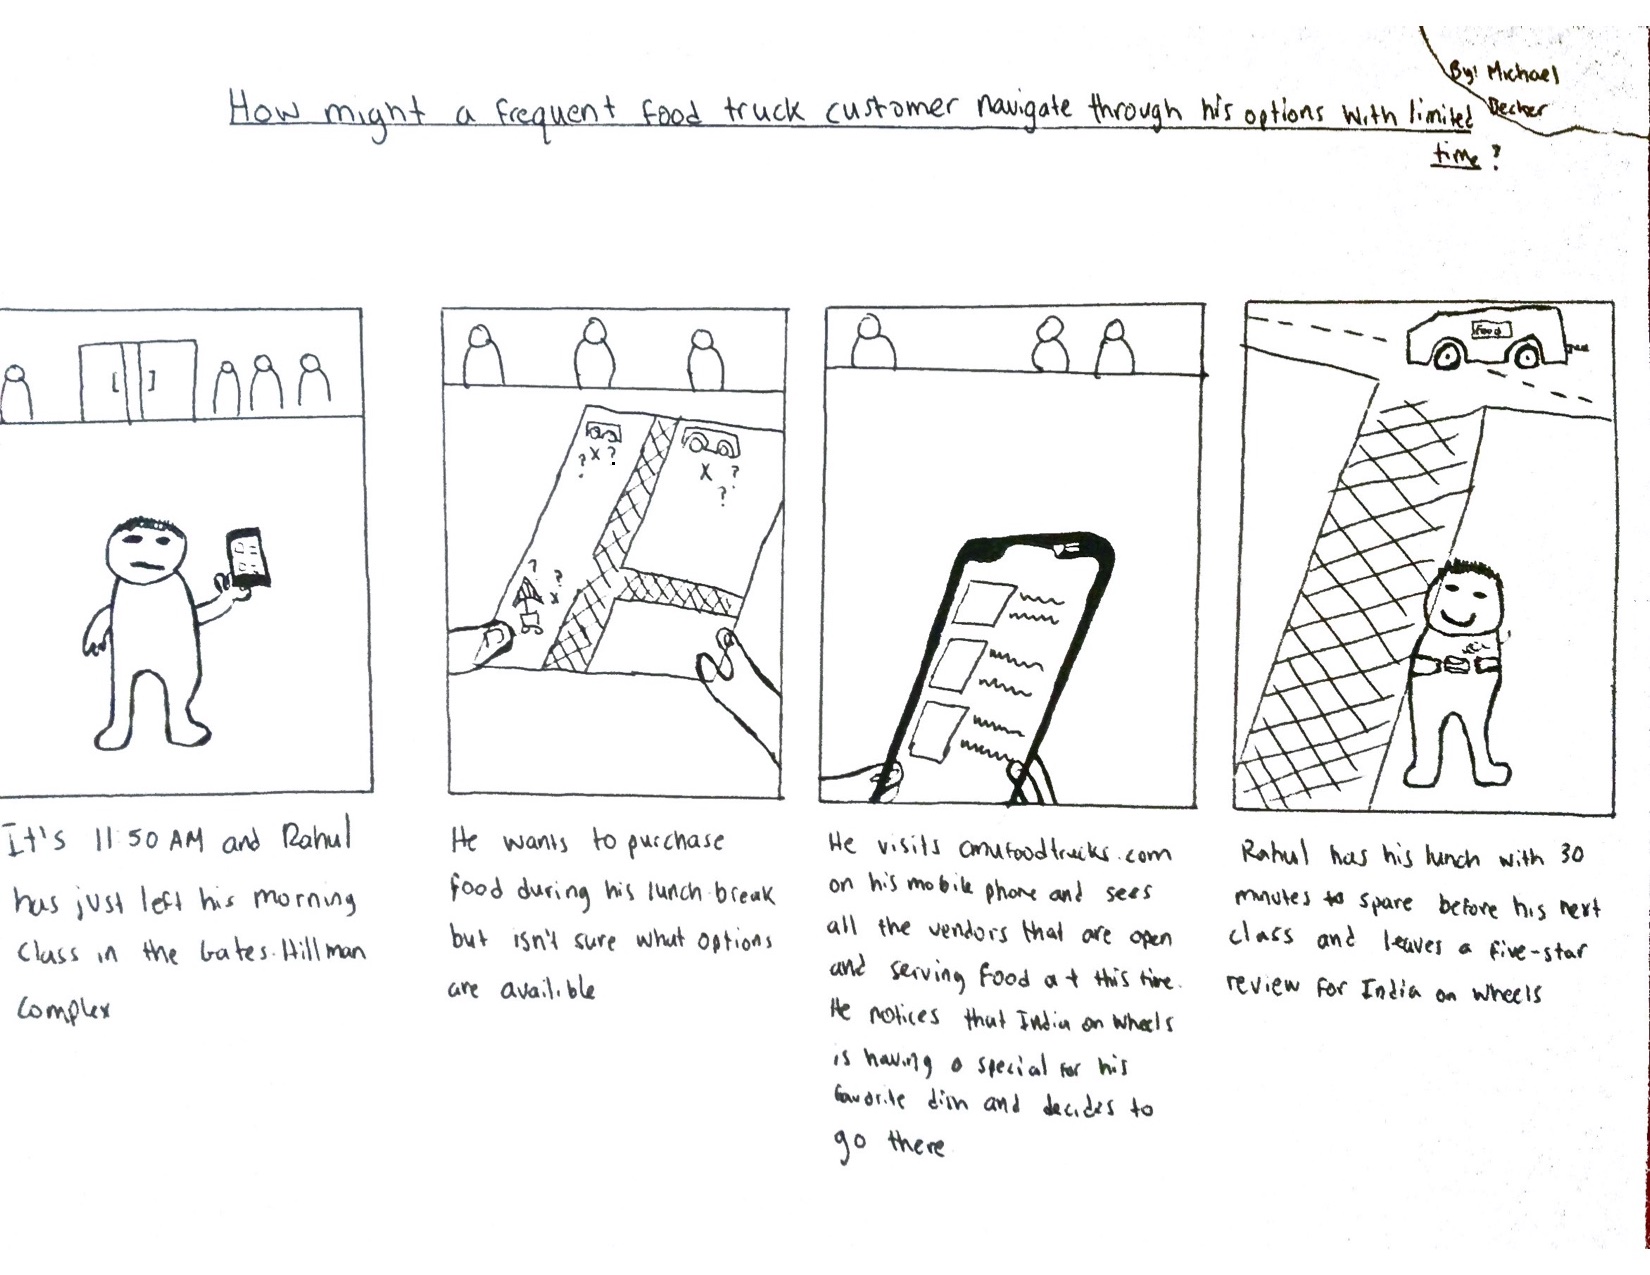 By: Michael
Decker
How might a frequent food truck customer navigate through his options with limited
time?
Food
? x ?
x ?
?
? ?
x
It's 11:50 AM and Rahul
has just left his morning
class in the Gates-Hillman
Complex
He wants to purchase
food during his lunch-break
but isn't sure what options
are availible
He visits cmufoodtrucks.com
on his mobile phone and sees
all the vendors that are open
and serving food at this time.
He notices that India on wheels
is having a special for his
favorite dish and decides to
go there
Rahul has his lunch with 30
minutes to spare before his next
class and leaves a five-star
review for India on wheels